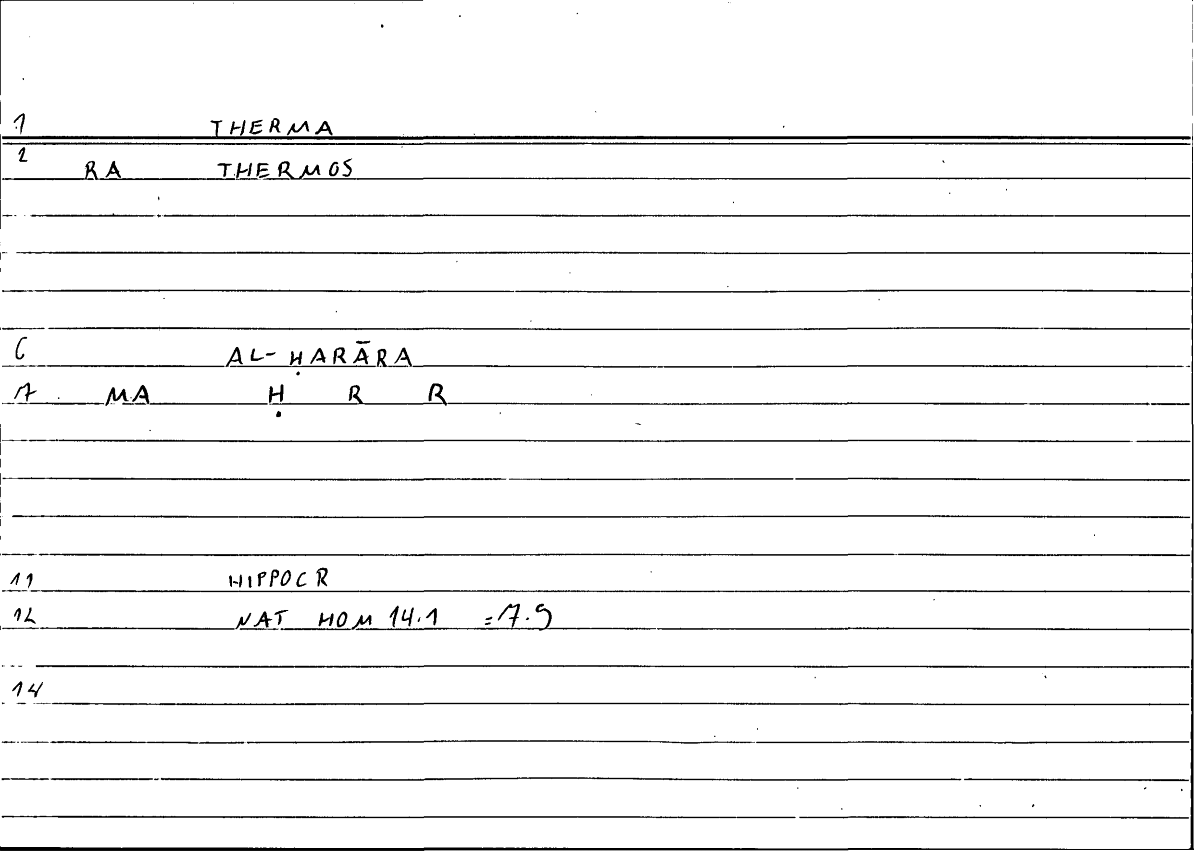 1 THERMA
2 RA THERMOS
6 AL-ḤARĀRA
7 MA Ḥ R R
11 HIPPOCR
12 NAT HOM 14.1 =7.9
14